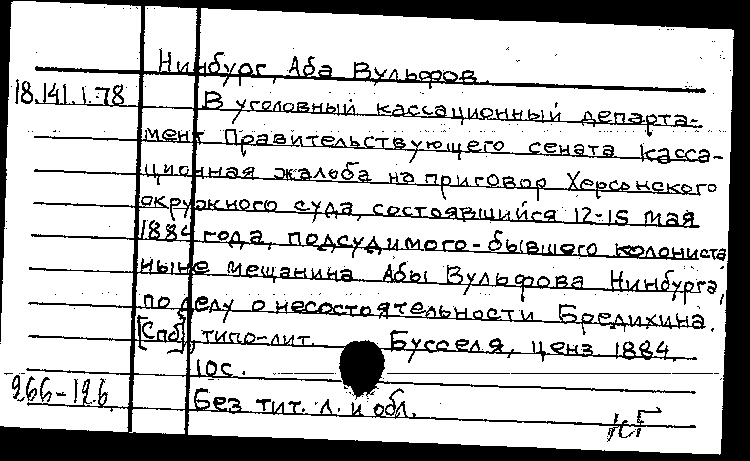 Нинбург, Аба Вульфов.
18.141.1.78 В уголовный кассационный департа-
мент Правительствующего сената касса-
ционная жалоба на приговор Херсонского
окружного суда, состоявшийся 12-15 мая
1884 года, подсудимого - бывшего колониста
ныне мещанина Абы Вульфова Нинбурга,
по делу о несостоятельности Бредихина.
[Спб], типо-лит. Бусселя, ценз. 1884.
10с.
266-126. Без тит. л. и обл.